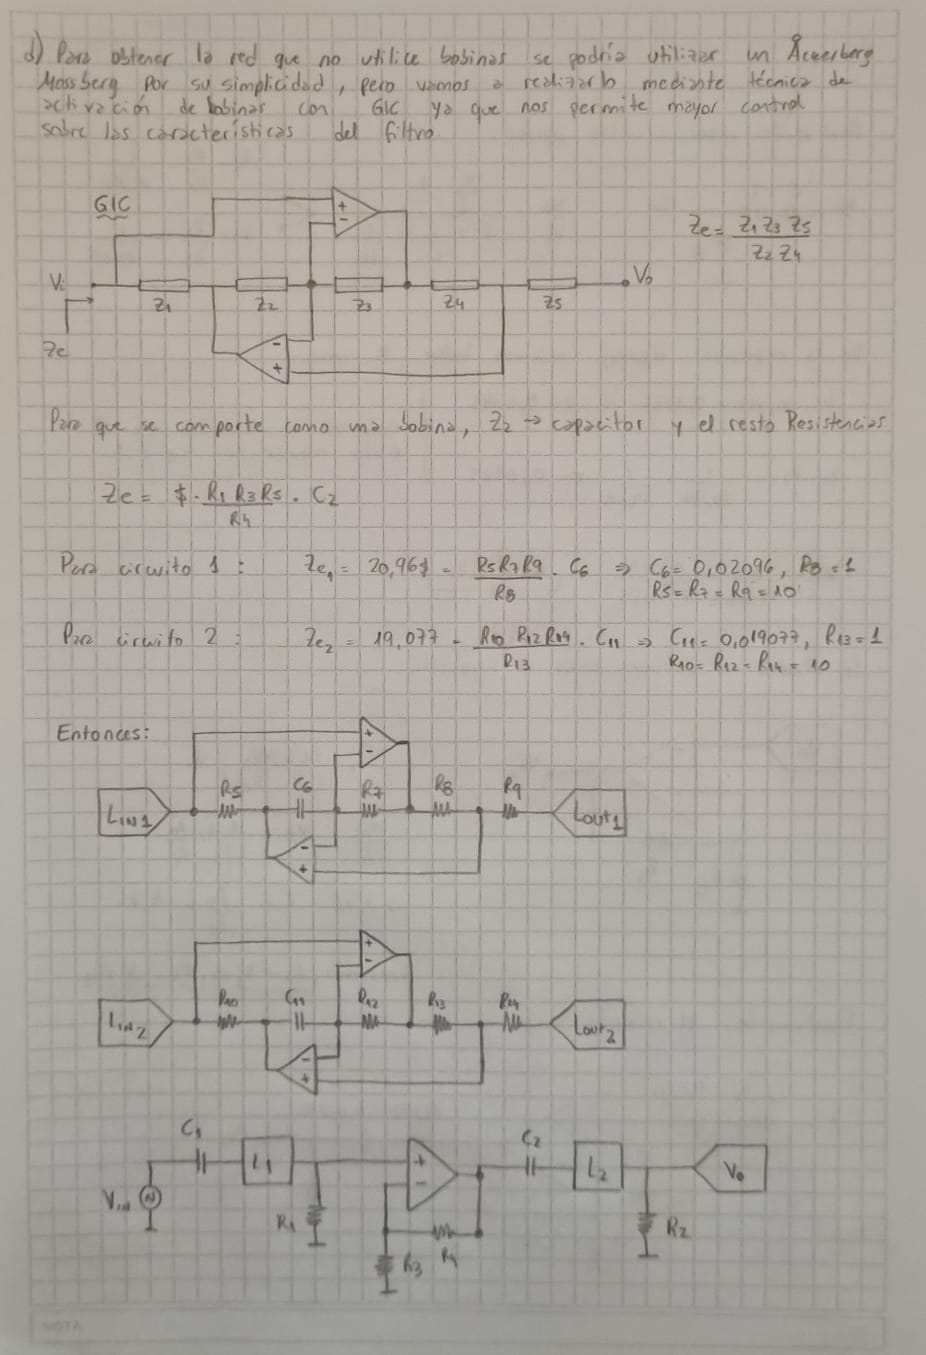 d) Para obtener la red que no utilice bobinas se podría utilizar un Åckerberg
Mossberg por su simplicidad, pero vamos a realizarlo mediante técnica de
activación de bobinas con GIC ya que nos permite mayor control
sobre las características del filtro
GIC
+
-
Ze = Z1 Z3 Z5 / Z2 Z4
Vi
Z1
Z2
Z3
Z4
Z5
Vo
Ze
-
+
Para que se comporte como una bobina, Z2 → capacitor y el resto Resistencias
Ze = $ · R1 R3 R5 / R4 · C2
Para circuito 1 : Ze1 = 20,96$ = R5 R7 R9 / R8 · C6 ⇒ C6 = 0,02096, R8 = 1
R5 = R7 = R9 = 10
Para circuito 2 : Ze2 = 19,077 = R10 R12 R14 / R13 · C11 ⇒ C11 = 0,019077, R13 = 1
R10 = R12 = R14 = 10
Entonces:
+
-
LIN1
R5
C6
R7
R8
R9
Lout1
-
+
+
-
LIN2
R10
C11
R12
R13
R14
Lout2
-
+
C1
L1
+
-
C2
L2
Vo
Vin
R1
R4
R2
R3
NOTA